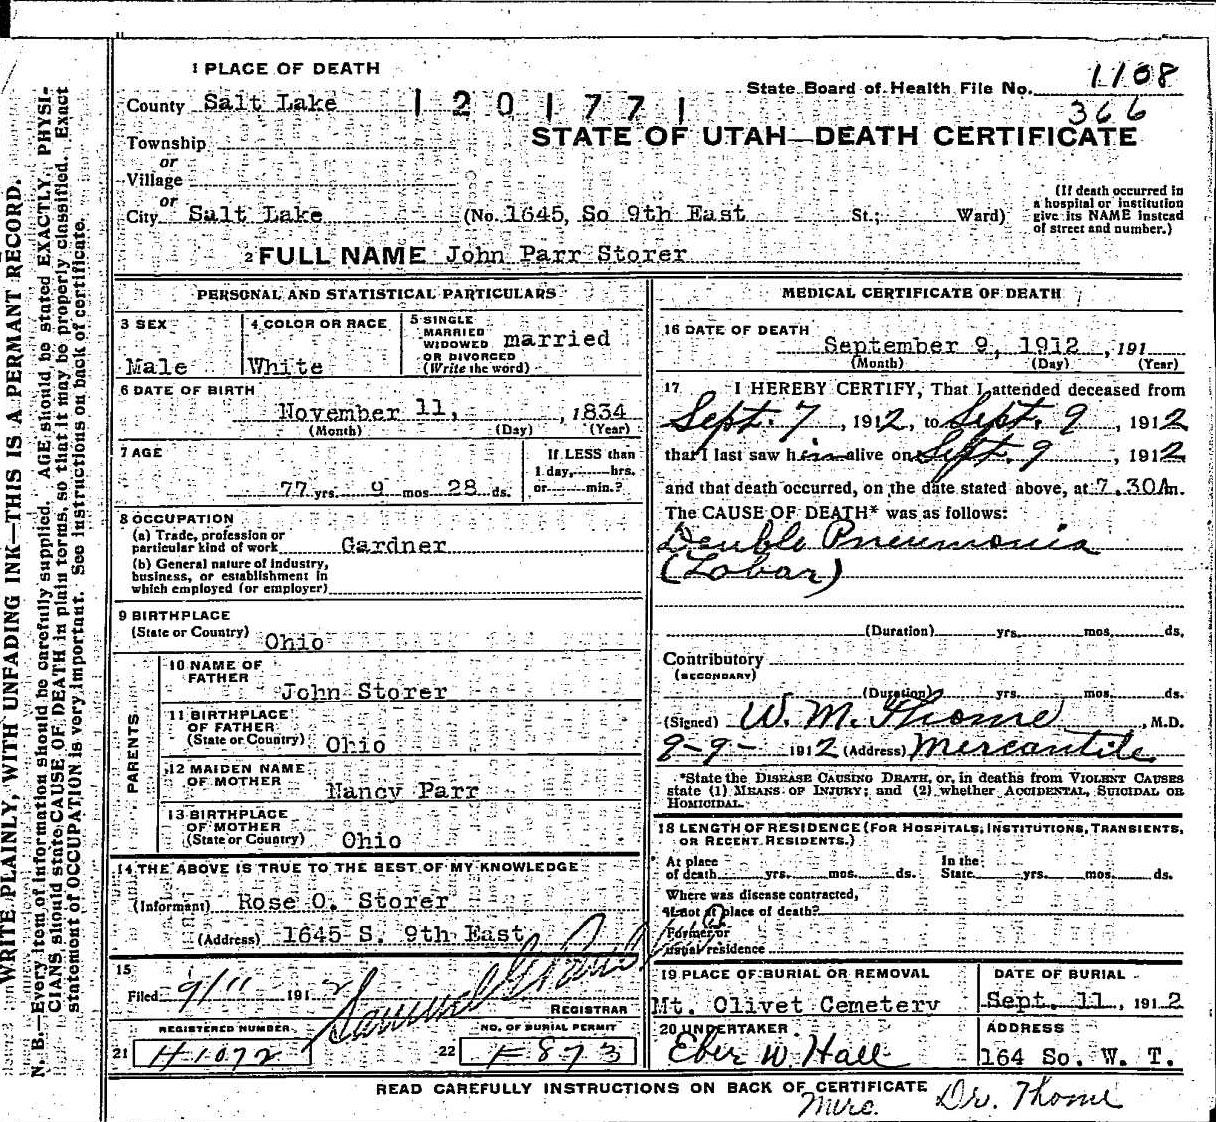 1 PLACE OF DEATH
County Salt Lake 1201771
State Board of Health File No. 1108
366
STATE OF UTAH—DEATH CERTIFICATE
Township
or
Village
or
City Salt Lake (No. 1645, So 9th East St.; Ward)
(If death occurred in
a hospital or institution
give its NAME instead
of street and number.)
2 FULL NAME John Parr Storer
PERSONAL AND STATISTICAL PARTICULARS
3 SEX
Male
4 COLOR OR RACE
White
5 SINGLE
MARRIED
WIDOWED
OR DIVORCED
(Write the word)
married
6 DATE OF BIRTH
November 11, , 1834
(Month) (Day) (Year)
7 AGE
77 yrs. 9 mos 28 ds.
If LESS than
1 day, hrs.
or min.?
8 OCCUPATION
(a) Trade, profession or
particular kind of work Gardner
(b) General nature of industry,
business, or establishment in
which employed (or employer)
9 BIRTHPLACE
(State or Country) Ohio
PARENTS
10 NAME OF
FATHER
John Storer
11 BIRTHPLACE
OF FATHER
(State or Country) Ohio
12 MAIDEN NAME
OF MOTHER
Nancy Parr
13 BIRTHPLACE
OF MOTHER
(State or Country) Ohio
14 THE ABOVE IS TRUE TO THE BEST OF MY KNOWLEDGE
(Informant) Rose O. Storer
(Address) 1645 S. 9th East
15
Filed 9/11 1912
REGISTRAR
REGISTERED NUMBER
21 H1072
NO. OF BURIAL PERMIT
22 873
MEDICAL CERTIFICATE OF DEATH
16 DATE OF DEATH
September 9, 1912 , 191
(Month) (Day) (Year)
17 I HEREBY CERTIFY, That I attended deceased from
Sept. 7 , 1912, to Sept. 9 , 1912
that I last saw him alive on Sept. 9 , 1912
and that death occurred, on the date stated above, at 7.30 Am.
The CAUSE OF DEATH* was as follows:
Double Pneumonia
(Lobar)
(Duration) yrs. mos. ds.
Contributory
(SECONDARY)
(Duration) yrs. mos. ds.
(Signed) W. M. Thome , M.D.
9-9- 1912 (Address) Mercantile
*State the DISEASE CAUSING DEATH, or, in deaths from VIOLENT CAUSES
state (1) MEANS OF INJURY; and (2) whether ACCIDENTAL, SUICIDAL OR
HOMICIDAL.
18 LENGTH OF RESIDENCE (FOR HOSPITALS, INSTITUTIONS, TRANSIENTS,
OR RECENT RESIDENTS.)
At place
of death yrs. mos. ds.
In the
State yrs. mos. ds.
Where was disease contracted,
if not at place of death?
Former or
usual residence
19 PLACE OF BURIAL OR REMOVAL
Mt. Olivet Cemetery
DATE OF BURIAL
Sept. 11 , 1912
20 UNDERTAKER
Eber W. Hall
ADDRESS
164 So. W. T.
READ CAREFULLY INSTRUCTIONS ON BACK OF CERTIFICATE
Merc. Dr. Thome
WRITE PLAINLY, WITH UNFADING INK—THIS IS A PERMANT RECORD.
N. B.—Every item of information should be carefully supplied. AGE should be stated EXACTLY. PHYSI-
CIANS should state CAUSE OF DEATH in plain terms, so that it may be properly classified. Exact
statement of OCCUPATION is very important. See instructions on back of certificate.